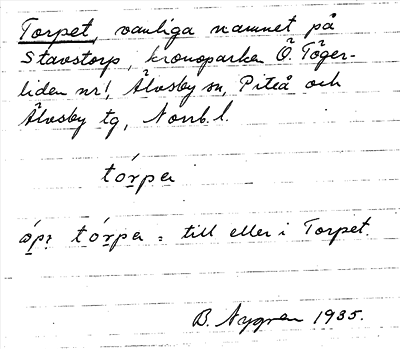 Torpet, vanliga namnet på
Stavstorp, kronoparken Ö. Töger-
liden nr 1, Älvsby sn, Piteå och
Älvsby tg, Norrb. l.
tórpa
tórpa = till eller i Torpet.
B. Nygren 1935.